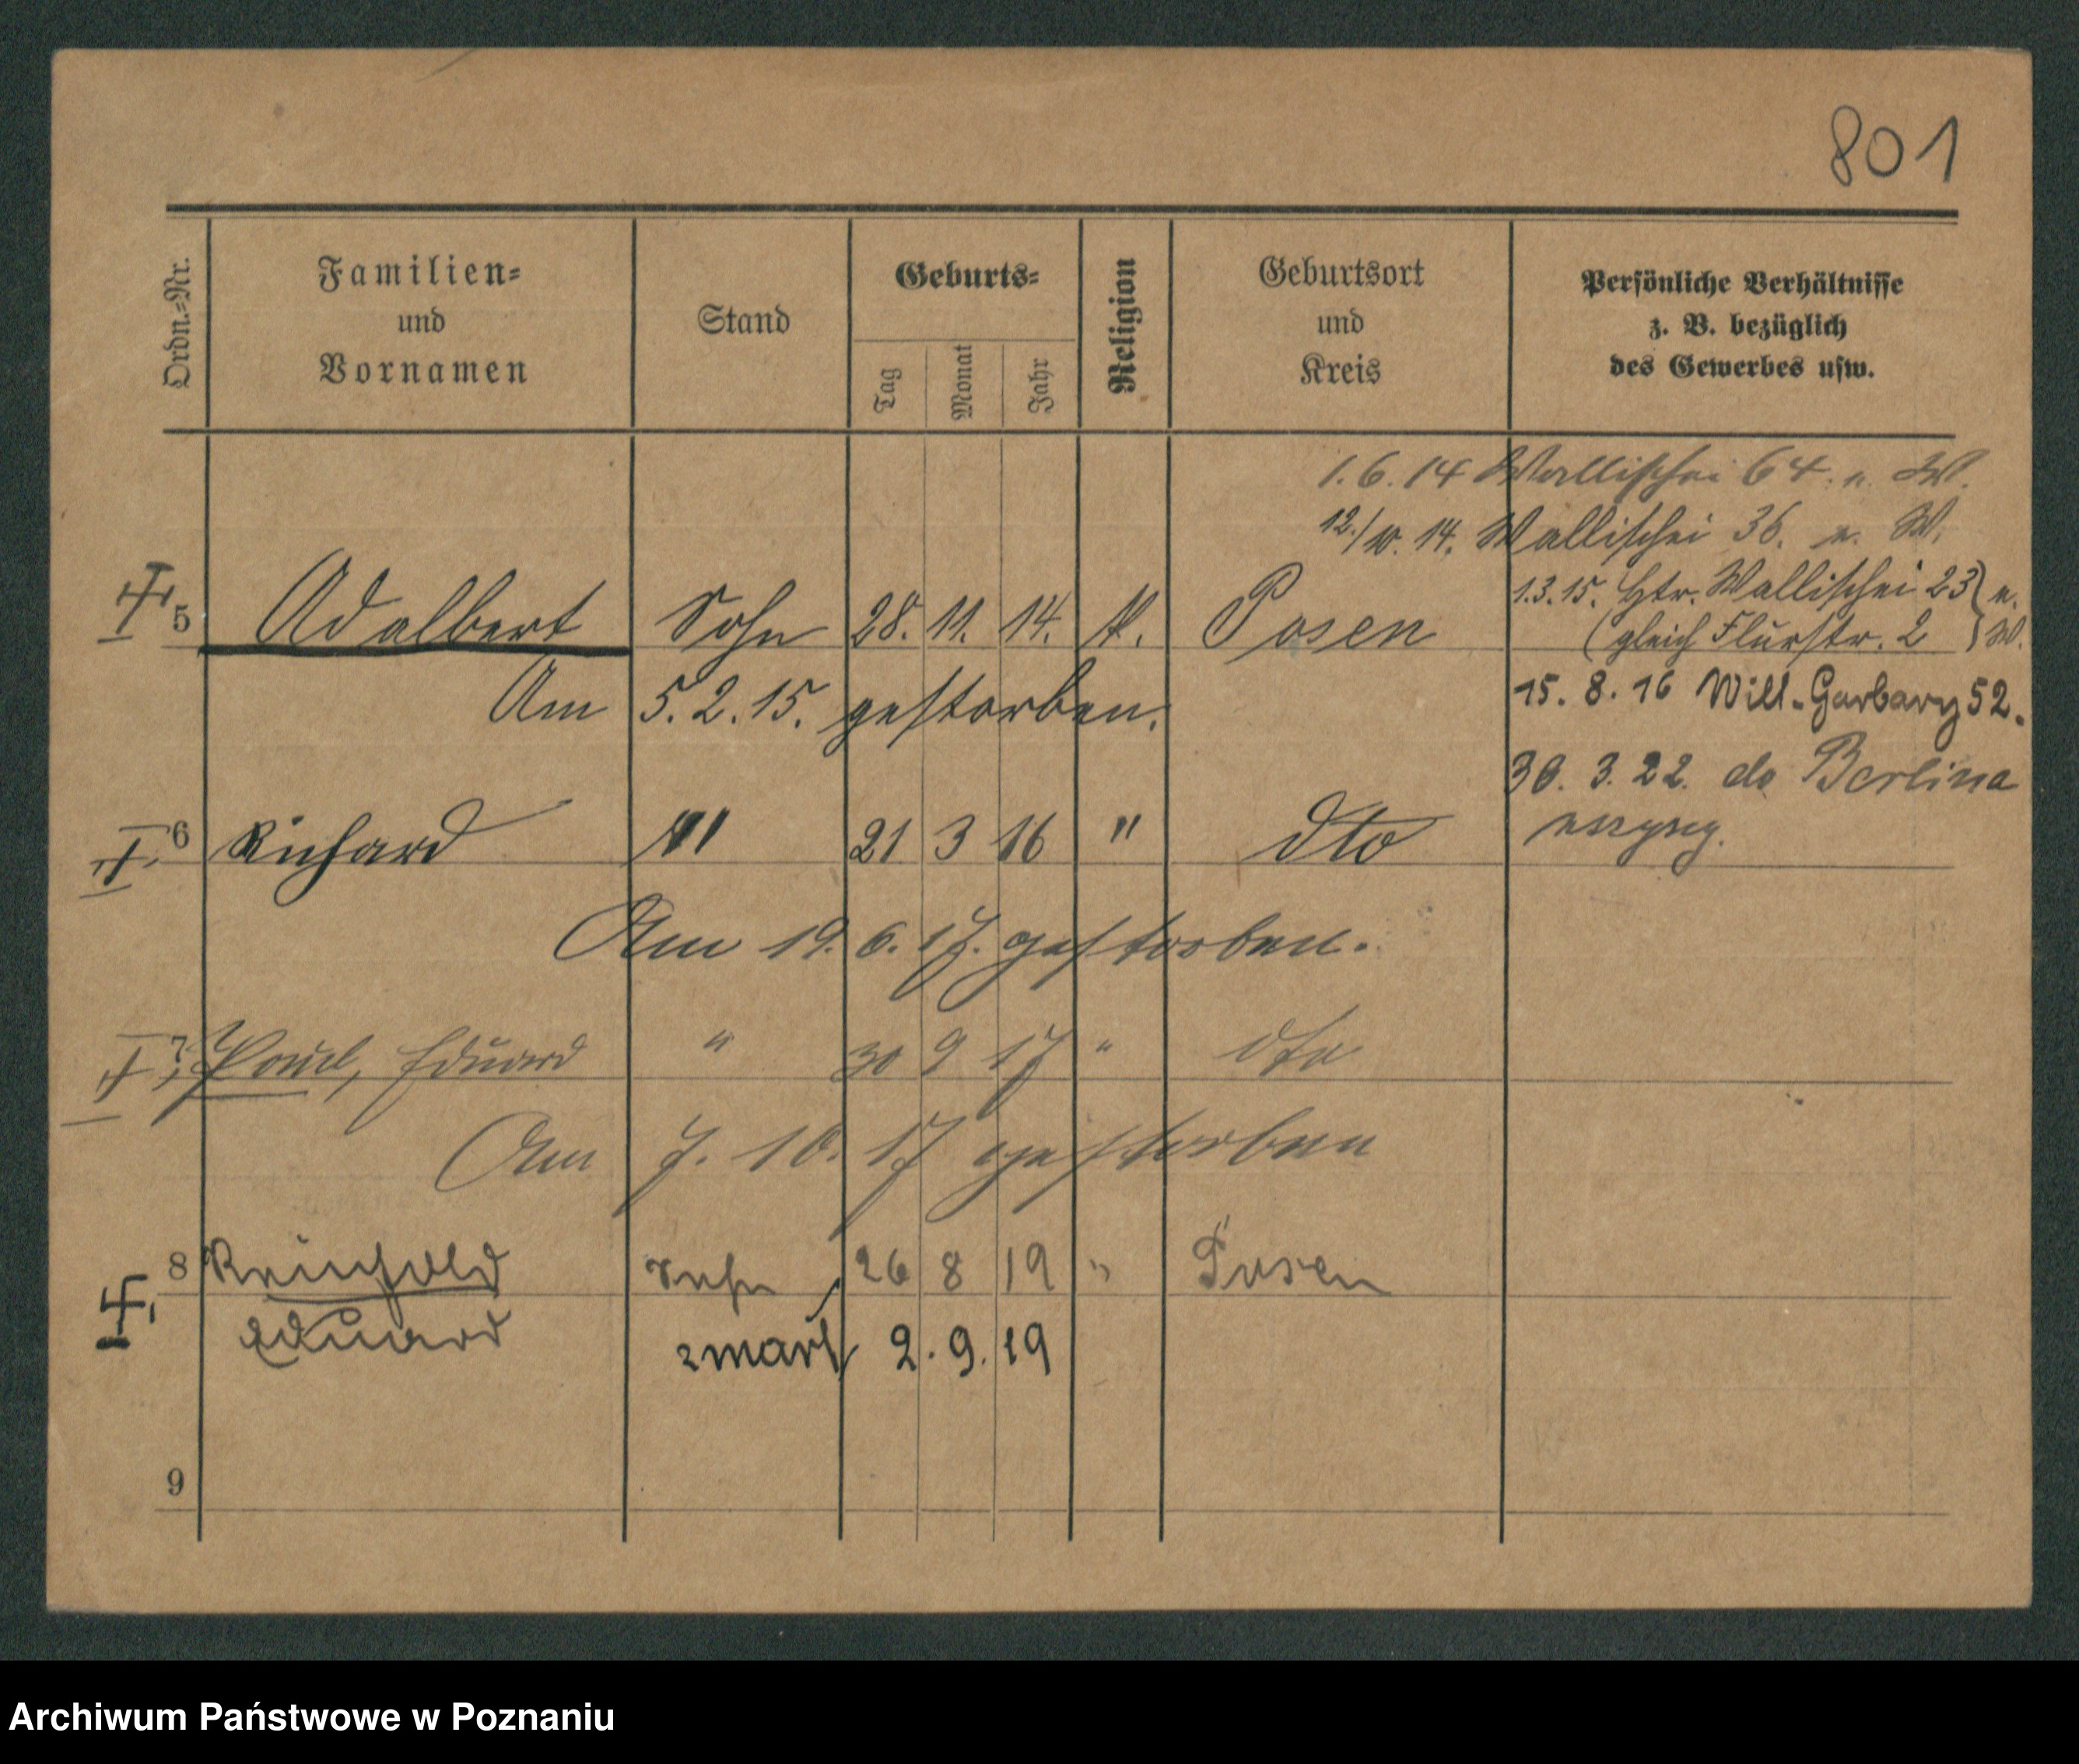 801
Ordn.=Nr.
Familien=
und
Vornamen
Stand
Geburts=
Tag
Monat
Jahr
Religion
Geburtsort
und
Kreis
Persönliche Verhältnisse
z. B. bezüglich
des Gewerbes usw.
1.6.14 Wallischei 64. n. W.
12./10. 14. Wallischei 36. n. W.
1.3.15. Htr. Wallischei 23 } n.
(gleich Flurstr. 2 } W.
5 Adalbert Sohn 28. 11. 14. K. Posen
Am 5.2.15. gestorben.
15. 8. 16 Will-Garbary 52.
30. 3. 22. do Berlina
6 Richard " 21 3 16 " dto
Am 19. 6. 17. gestorben.
7 Paul, Eduard " 30 9 17 " dto
Am 7. 10. 17 gestorben
8 Reinhold Sohn 26 8 19 " Posen
Eduard zmarł 2. 9. 19
9
Archiwum Państwowe w Poznaniu